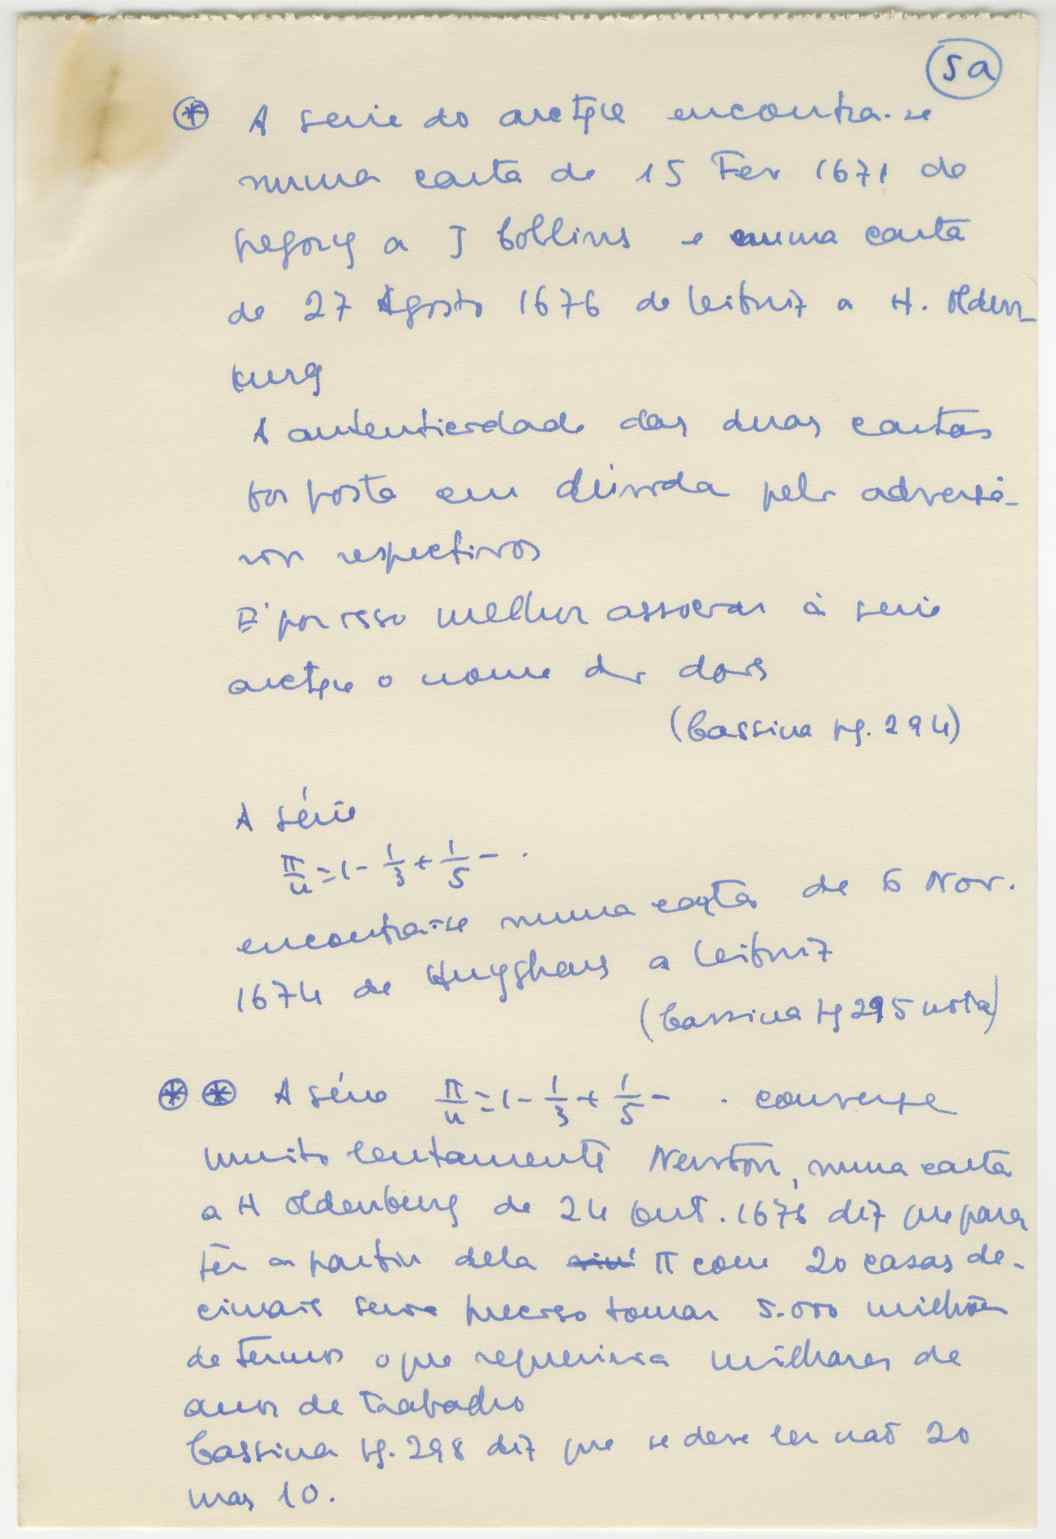 5a
* A serie do arctg x encontra-se
numa carta de 15 Fev 1671 de
Gregory a J Collins e numa carta
de 27 Agosto 1676 de Leibniz a H. Olden-
burg
A autenticidade das duas cartas
foi posta em dúvida pelos adversá-
rios respectivos
E' por isso melhor associar à serie
arctg x o nome dos dois
(Cassina pg. 294)
A série
π/4 = 1 - 1/3 + 1/5 - .
encontra-se numa carta de 6 Nov.
1674 de Huyghens a Leibniz
(Cassina pg 295 nota)
* * A série π/4 = 1 - 1/3 + 1/5 - . converge
muito lentamente Newton, numa carta
a H Oldenburg de 24 Out. 1676 diz que para
ter a partir dela π com 20 casas de-
cimais seria preciso tomar 5.000 milhões
de termos o que requeriria milhares de
anos de trabalho
Cassina pg. 298 diz que se deve ler não 20
mas 10.